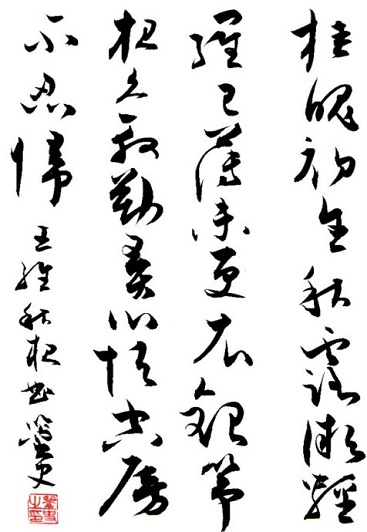 桂魄初生秋露微輕
羅已薄未更衣銀箏
夜久殷勤弄心怯空房
不忍歸 王維秋夜曲